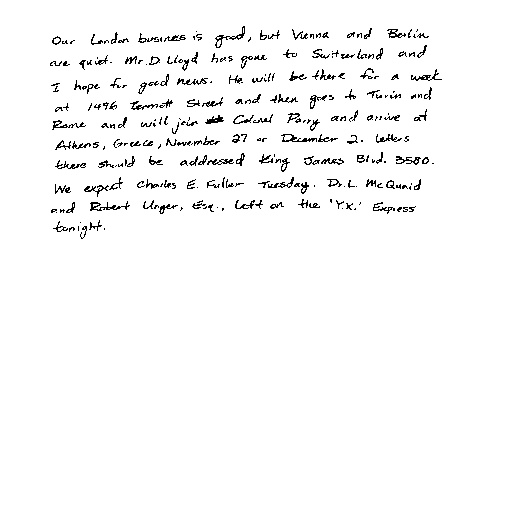 Our London business is good, but Vienna and Berlin
are quiet. Mr. D. Lloyd has gone to Switzerland and
I hope for good news. He will be there for a week
at 1496 Zermott Street and then goes to Turin and
Rome and will join Colonel Parry and arrive at
Athens, Greece, November 27 or December 2. Letters
there should be addressed King James Blvd. 3580.
We expect Charles E. Fuller Tuesday. Dr. L. McQuaid
and Robert Unger, Esq., left on the 'Y.X.' Express
tonight.